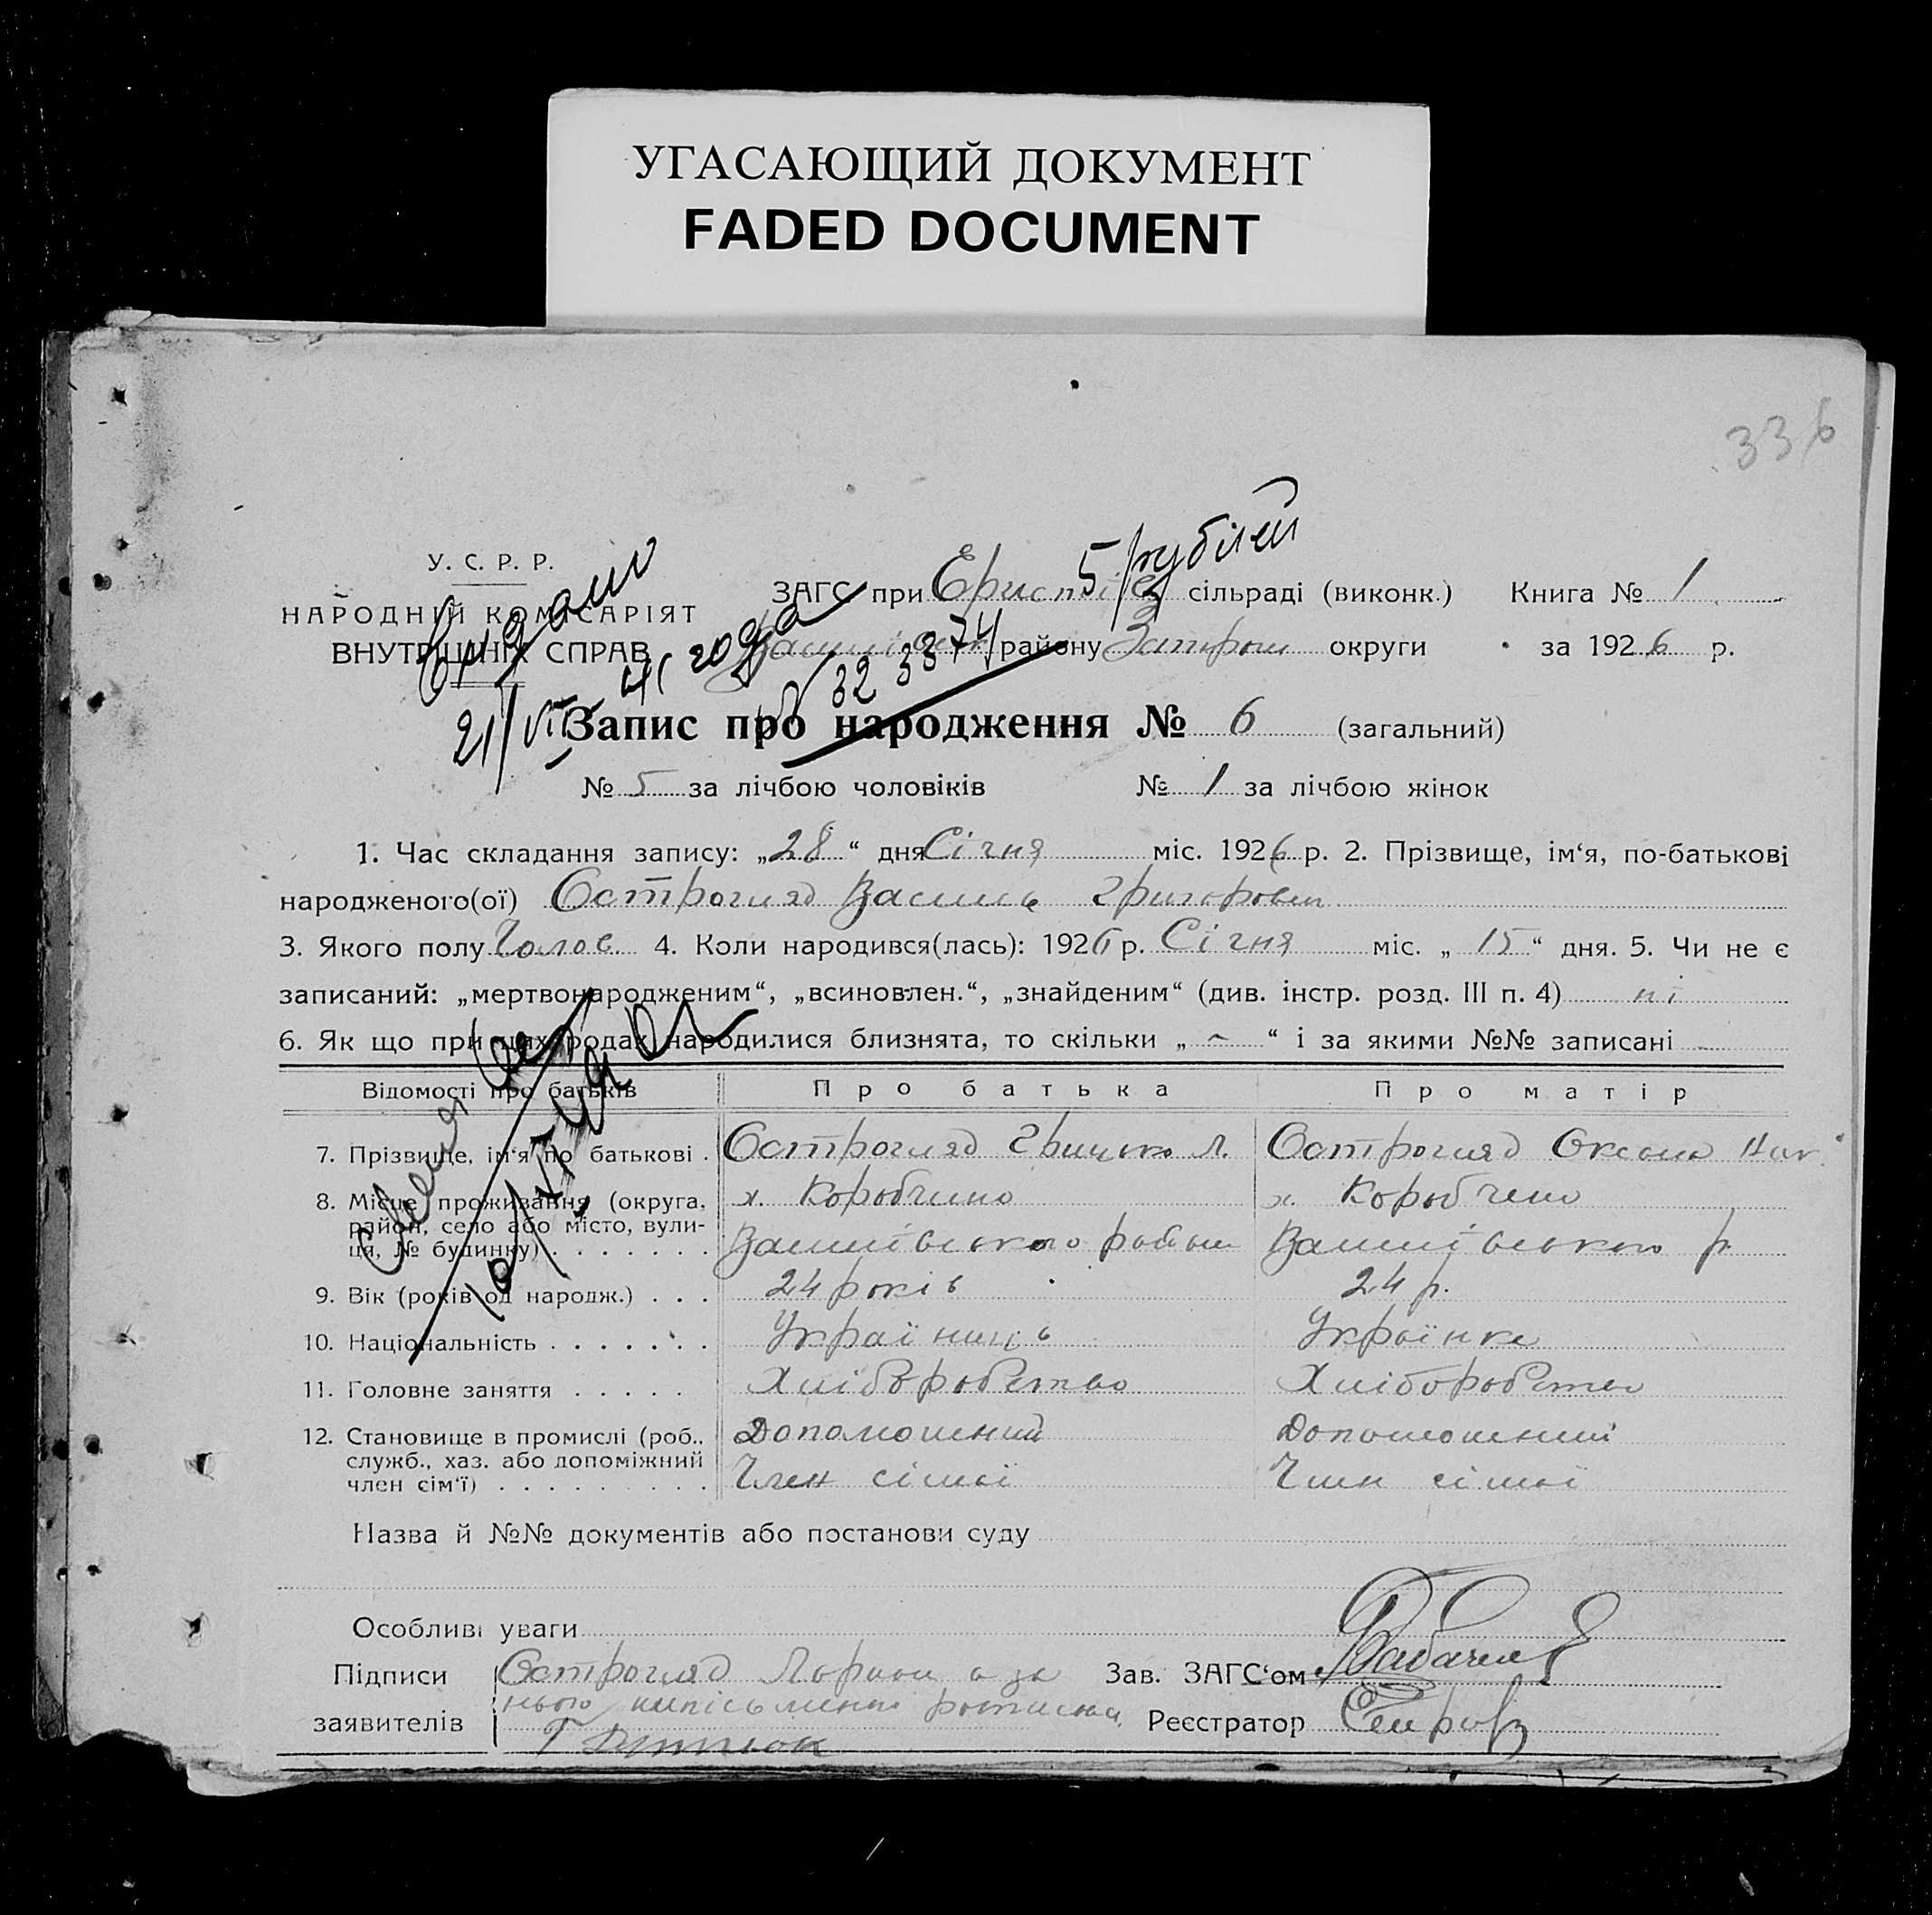 УГАСАЮЩИЙ ДОКУМЕНТ
FADED DOCUMENT
336
У. С. Р. Р.
НАРОДНІЙ КОМІСАРІЯТ
ВНУТРІШНІХ СПРАВ
видано
21/VII 41 года
№ 323374
5 рублей
ЗАГС при сільраді (виконк.) Книга № 1
району округи за 1926 р.
Запис про народження № 6 (загальний)
№ 5 за лічбою чоловіків № 1 за лічбою жінок
1. Час складання запису: „28“ дня Січня міс. 1926 р. 2. Прізвище, ім‘я, по-батькові
народженого(ої) Острогляд Василь Григорович
3. Якого полу Чолов. 4. Коли народився(лась): 1926 р. Січня міс. „15“ дня. 5. Чи не є
записаний: „мертвонародженим“, „всиновлен.“, „знайденим“ (див. інстр. розд. III п. 4) ні
6. Як що при цих родах народилися близнята, то скільки „ ~ “ і за якими №№ записані
Відомості про батьків Про батька Про матір
7. Прізвище, ім‘я по батькові . Острогляд Грицько Л. Острогляд Оксана
8. Місце проживання (округа, х. Коробчино х. Коробчено
район, село або місто, вули-
ця, № будинку) . . . . . . . району р.
9. Вік (років од народж.) . . . 24 років 24 р.
10. Національність . . . . . . . Українець Українка
11. Головне заняття . . . . . Хліборобство Хліборобство
12. Становище в промислі (роб., Допомошний Допомошний
служб., хаз. або допоміжний
член сім‘ї) . . . . . . . . . Член сімої Член сімої
Назва й №№ документів або постанови суду
Особливі уваги
Підписи Острогляд Ларион а за Зав. ЗАГС‘ом
заявителів нього Реєстратор